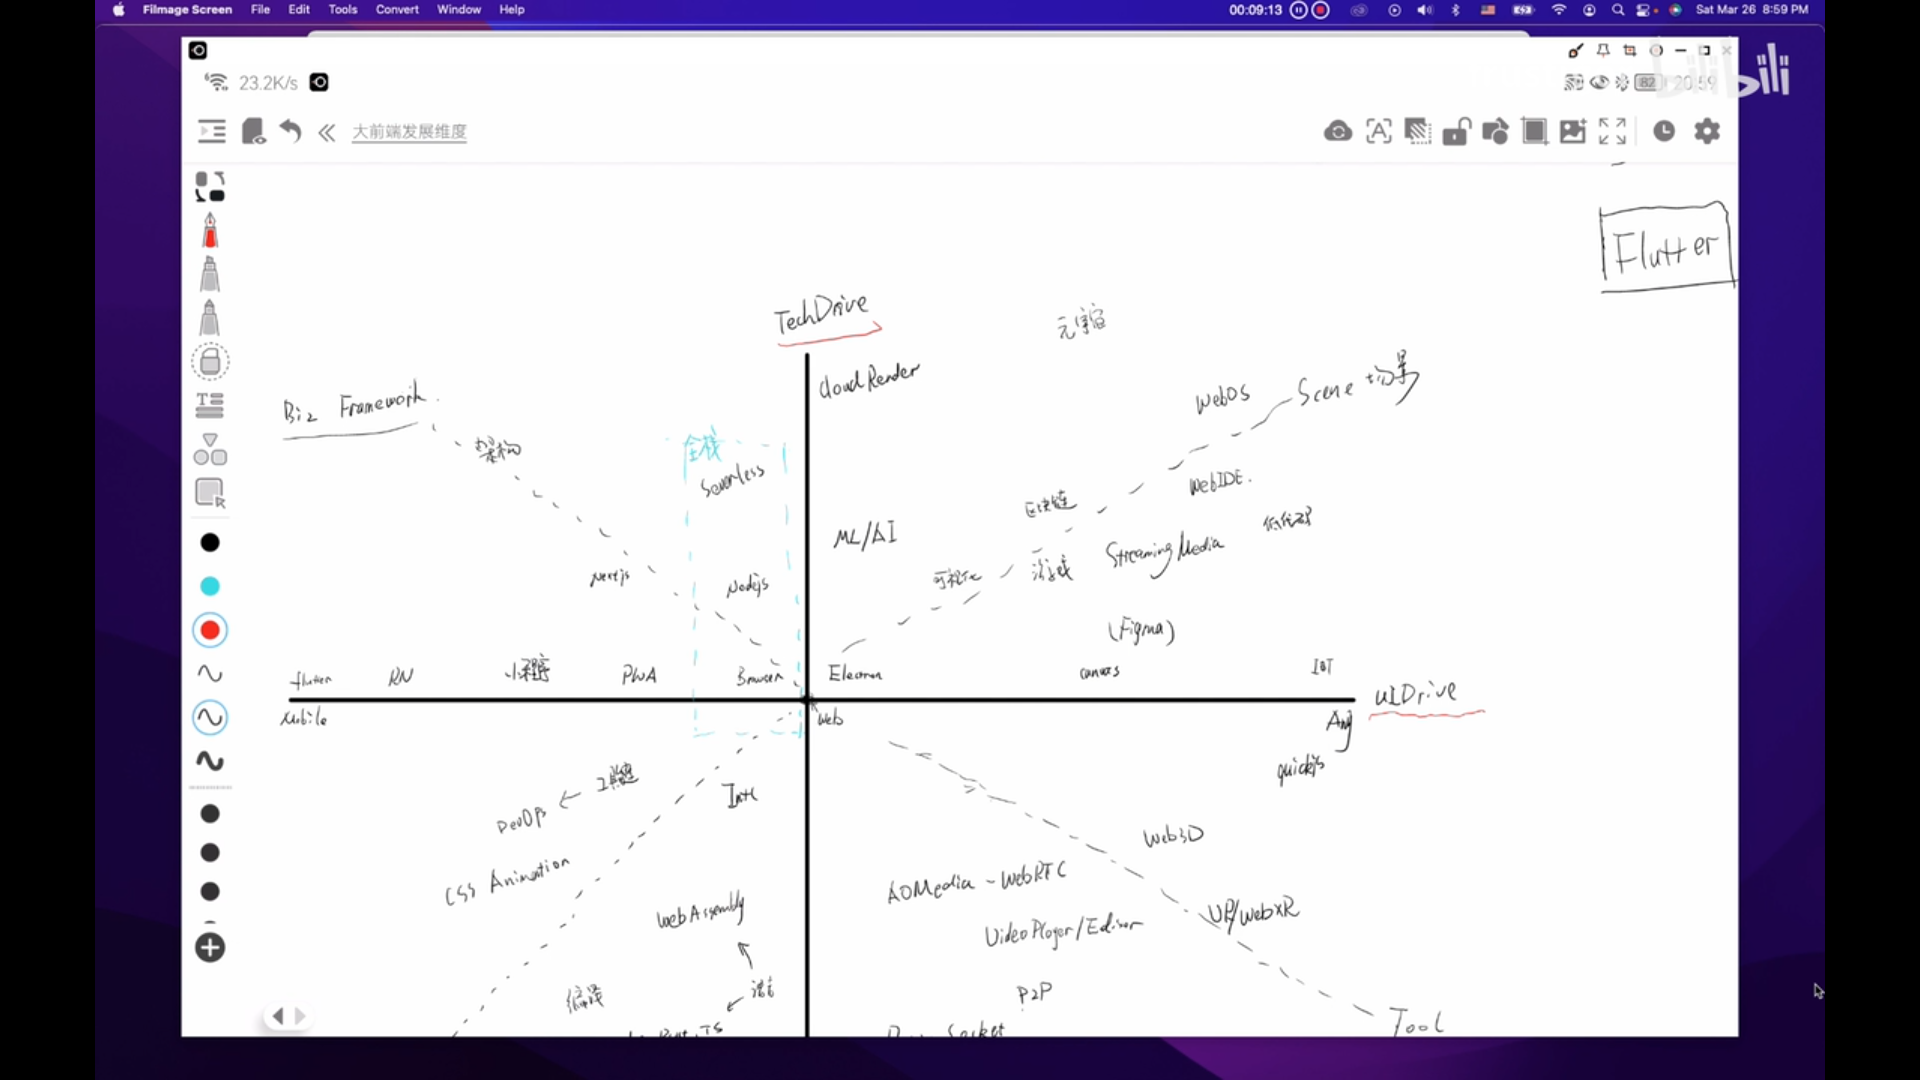 Filmage Screen File Edit Tools Convert Window Help
00:09:13
Sat Mar 26 8:59 PM
bilibili
23.2K/s
82 20:59
大前端发展维度
Flutter
TechDrive
元宇宙
CloudRender
Biz Framework.
架构
WebOS
Scene 场景
全栈
Serverless
WebIDE.
区块链
低代码
ML/AI
Streaming Media
可视化
游戏
Nextjs
Nodejs
(Figma)
flutter RN 小程序 PWA Browser Electron canvas IOT
UIDrive
Mobile Web Any
quickjs
工程化
DevOps
Web3D
CSS Animation
AOMedia - WebRTC
WebAssembly
VR/WebXR
VideoPlayer/Editor
编译
语言
P2P
Rust, TS
Socket
Tool